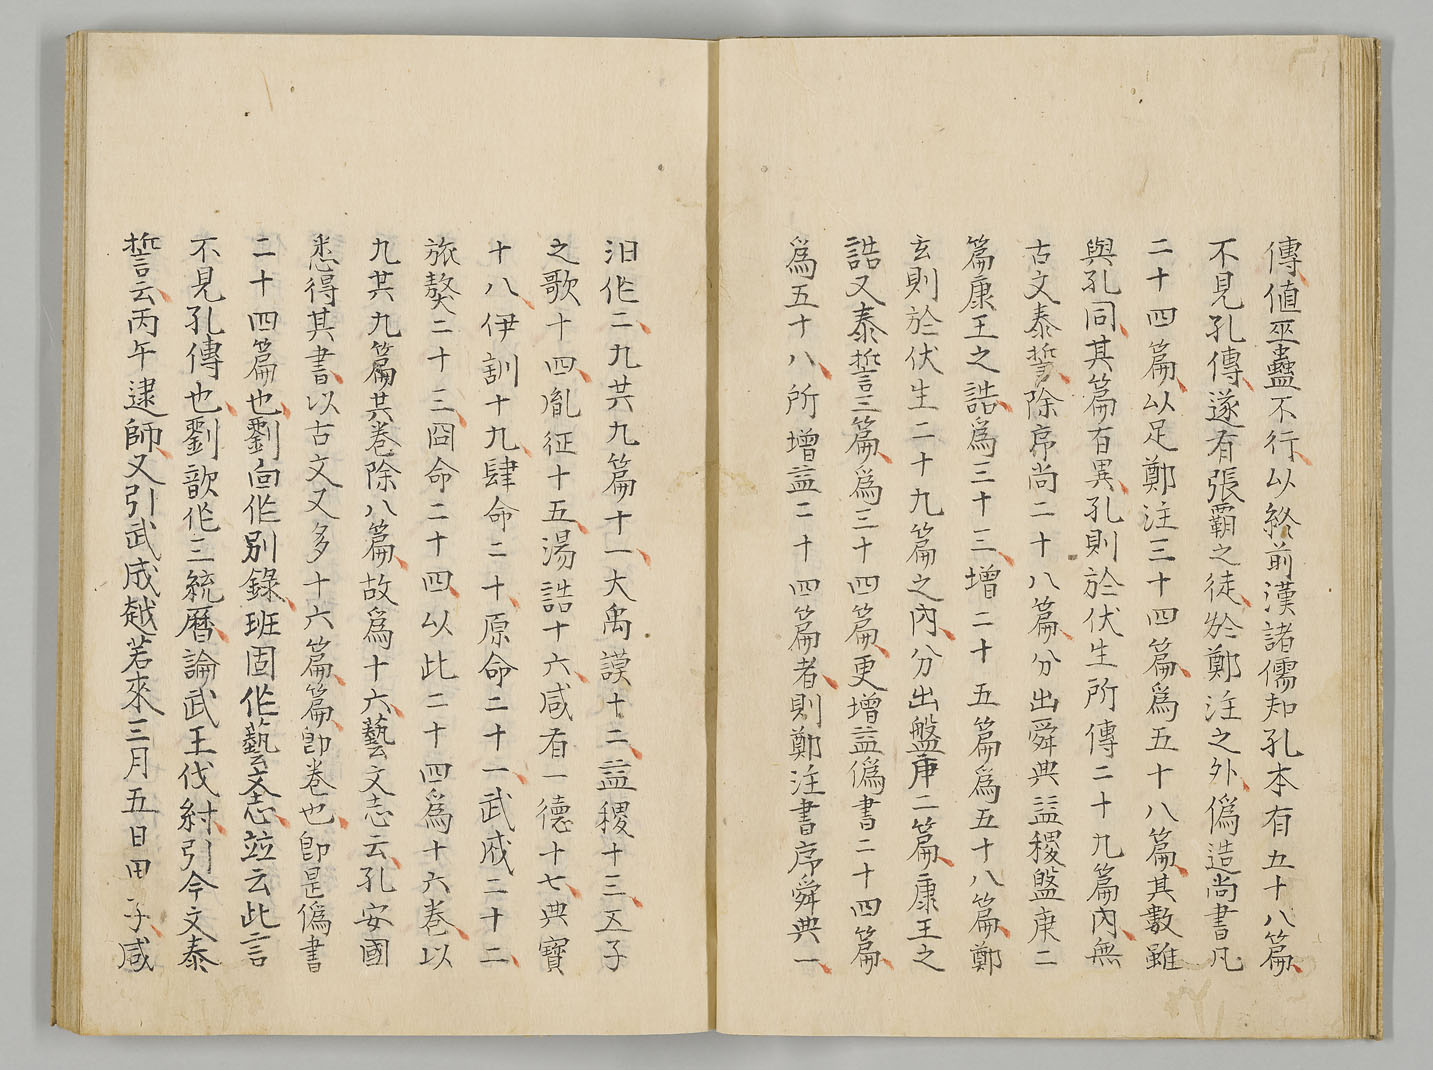 傳値巫蠱不行以終前漢諸儒知孔本有五十八篇
不見孔傳遂有張霸之徒於鄭注之外僞造尚書凡
二十四篇以足鄭注三十四篇爲五十八篇其數雖
與孔同其篇有異孔則於伏生所傳二十九篇內無
古文泰誓除序尚二十八篇分出舜典益稷盤庚二
篇康王之誥爲三十三增二十五篇爲五十八篇鄭
玄則於伏生二十九篇之內分出盤庚二篇康王之
誥又泰誓三篇爲三十四篇更增益僞書二十四篇
爲五十八所增益二十四篇者則鄭注書序舜典一
汩作二九共九篇十一大禹謨十二益稷十三五子
之歌十四胤征十五湯誥十六咸有一德十七典寶
十八伊訓十九肆命二十原命二十一武成二十二
旅獒二十三冏命二十四以此二十四爲十六卷以
九共九篇共卷除八篇故爲十六藝文志云孔安國
悉得其書以古文又多十六篇篇卽卷也卽是僞書
二十四篇也劉向作別錄班固作藝文志竝云此言
不見孔傳也劉歆作三統曆論武王伐紂引今文泰
誓云丙午逮師又引武成越若來三月五日甲子咸